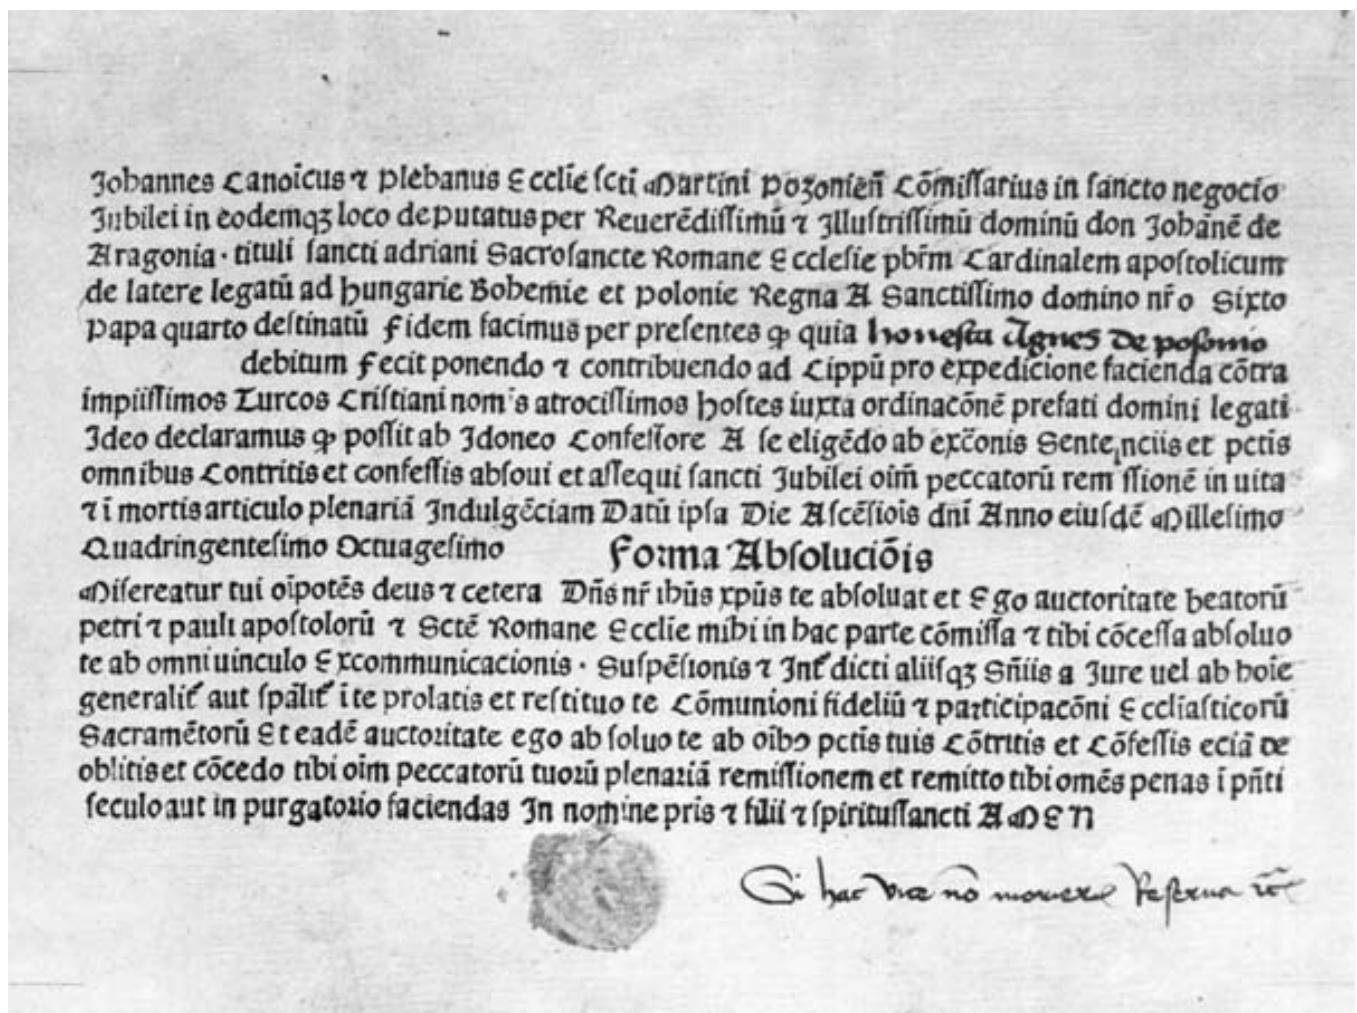 Johannes Canoīcus ⁊ plebanus Ecclīe scti Martini pozonien̄ Cōmissarius in sancto negocio
Jubilei in eodemqꝫ loco deputatus per Reuerēdissimū ⁊ Illustrissimū dominū don Johānē de
Aragonia · tituli sancti adriani Sacrosancte Romane Ecclesie pbr̄m Cardinalem apostolicum
de latere legatū ad hungarie Bohemie et polonie Regna A Sanctissimo domino nr̄o Sixto
papa quarto destinatū fidem facimus per presentes ꝙ quia honesta Agnes de posonio
debitum fecit ponendo ⁊ contribuendo ad Cippū pro expedicione facienda cōtra
impiissimos Turcos Cristiani nom's atrocissimos hostes iuxta ordinacōnē prefati domini legati
Ideo declaramus ꝙ possit ab Idoneo Confessore A se eligēdo ab exc̄onis Sentenciis et pctis
omnibus Contritis et confessis absoui et assequi sancti Jubilei oim̄ peccatorū rem ssionē in uita
⁊ ī mortis articulo plenariā Indulgēciam Datū ipsa Die Ascēsiois dn̄i Anno eiusdē Millesimo
Quadringentesimo Octuagesimo Forma Absoluciōis
Misereatur tui oīpotēs deus ⁊ cetera Dn̄s nr̄ ihūs xpūs te absoluat et Ego auctoritate beatorū
petri ⁊ pauli apostolorū ⁊ Sctē Romane Ecclīe mihi in hac parte cōmissa ⁊ tibi cōcessa absoluo
te ab omni uinculo Excommunicacionis · Suspēsionis ⁊ Int̄dicti aliisqꝫ Sn̄iis a Jure uel ab hoīe
generalit̄ aut spālit̄ ī te prolatis et restituo te Cōmunioni fideliū ⁊ participacōni Eccliasticorū
Sacramētorū Et eadē auctoritate ego absoluo te ab oībꝰ pctis tuis Cōtritis et Cōfessis eciā de
oblitis et cōcedo tibi oīm peccatorū tuorū plenariā remissionem et remitto tibi omēs penas ī pn̄ti
seculo aut in purgatorio faciendas In nomine pris ⁊ filii ⁊ spiritussancti AMEN
Si hac vice nō Reserua